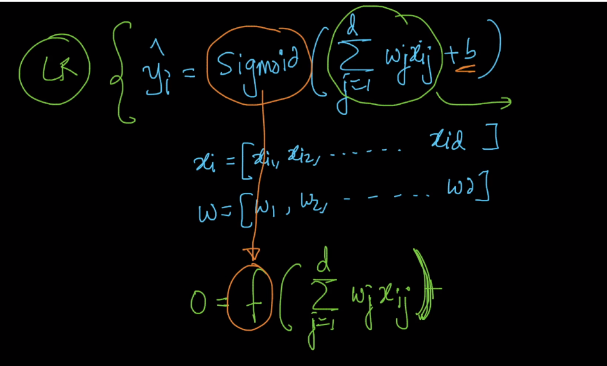 LR { ŷᵢ = Sigmoid ( ∑_{j=1}^{d} wⱼxᵢⱼ + b )
xᵢ = [xᵢ₁, xᵢ₂, ...... xᵢd ]
w = [w₁, w₂, - ..... wd]
O = f ( ∑_{j=1}^{d} wⱼxᵢⱼ )